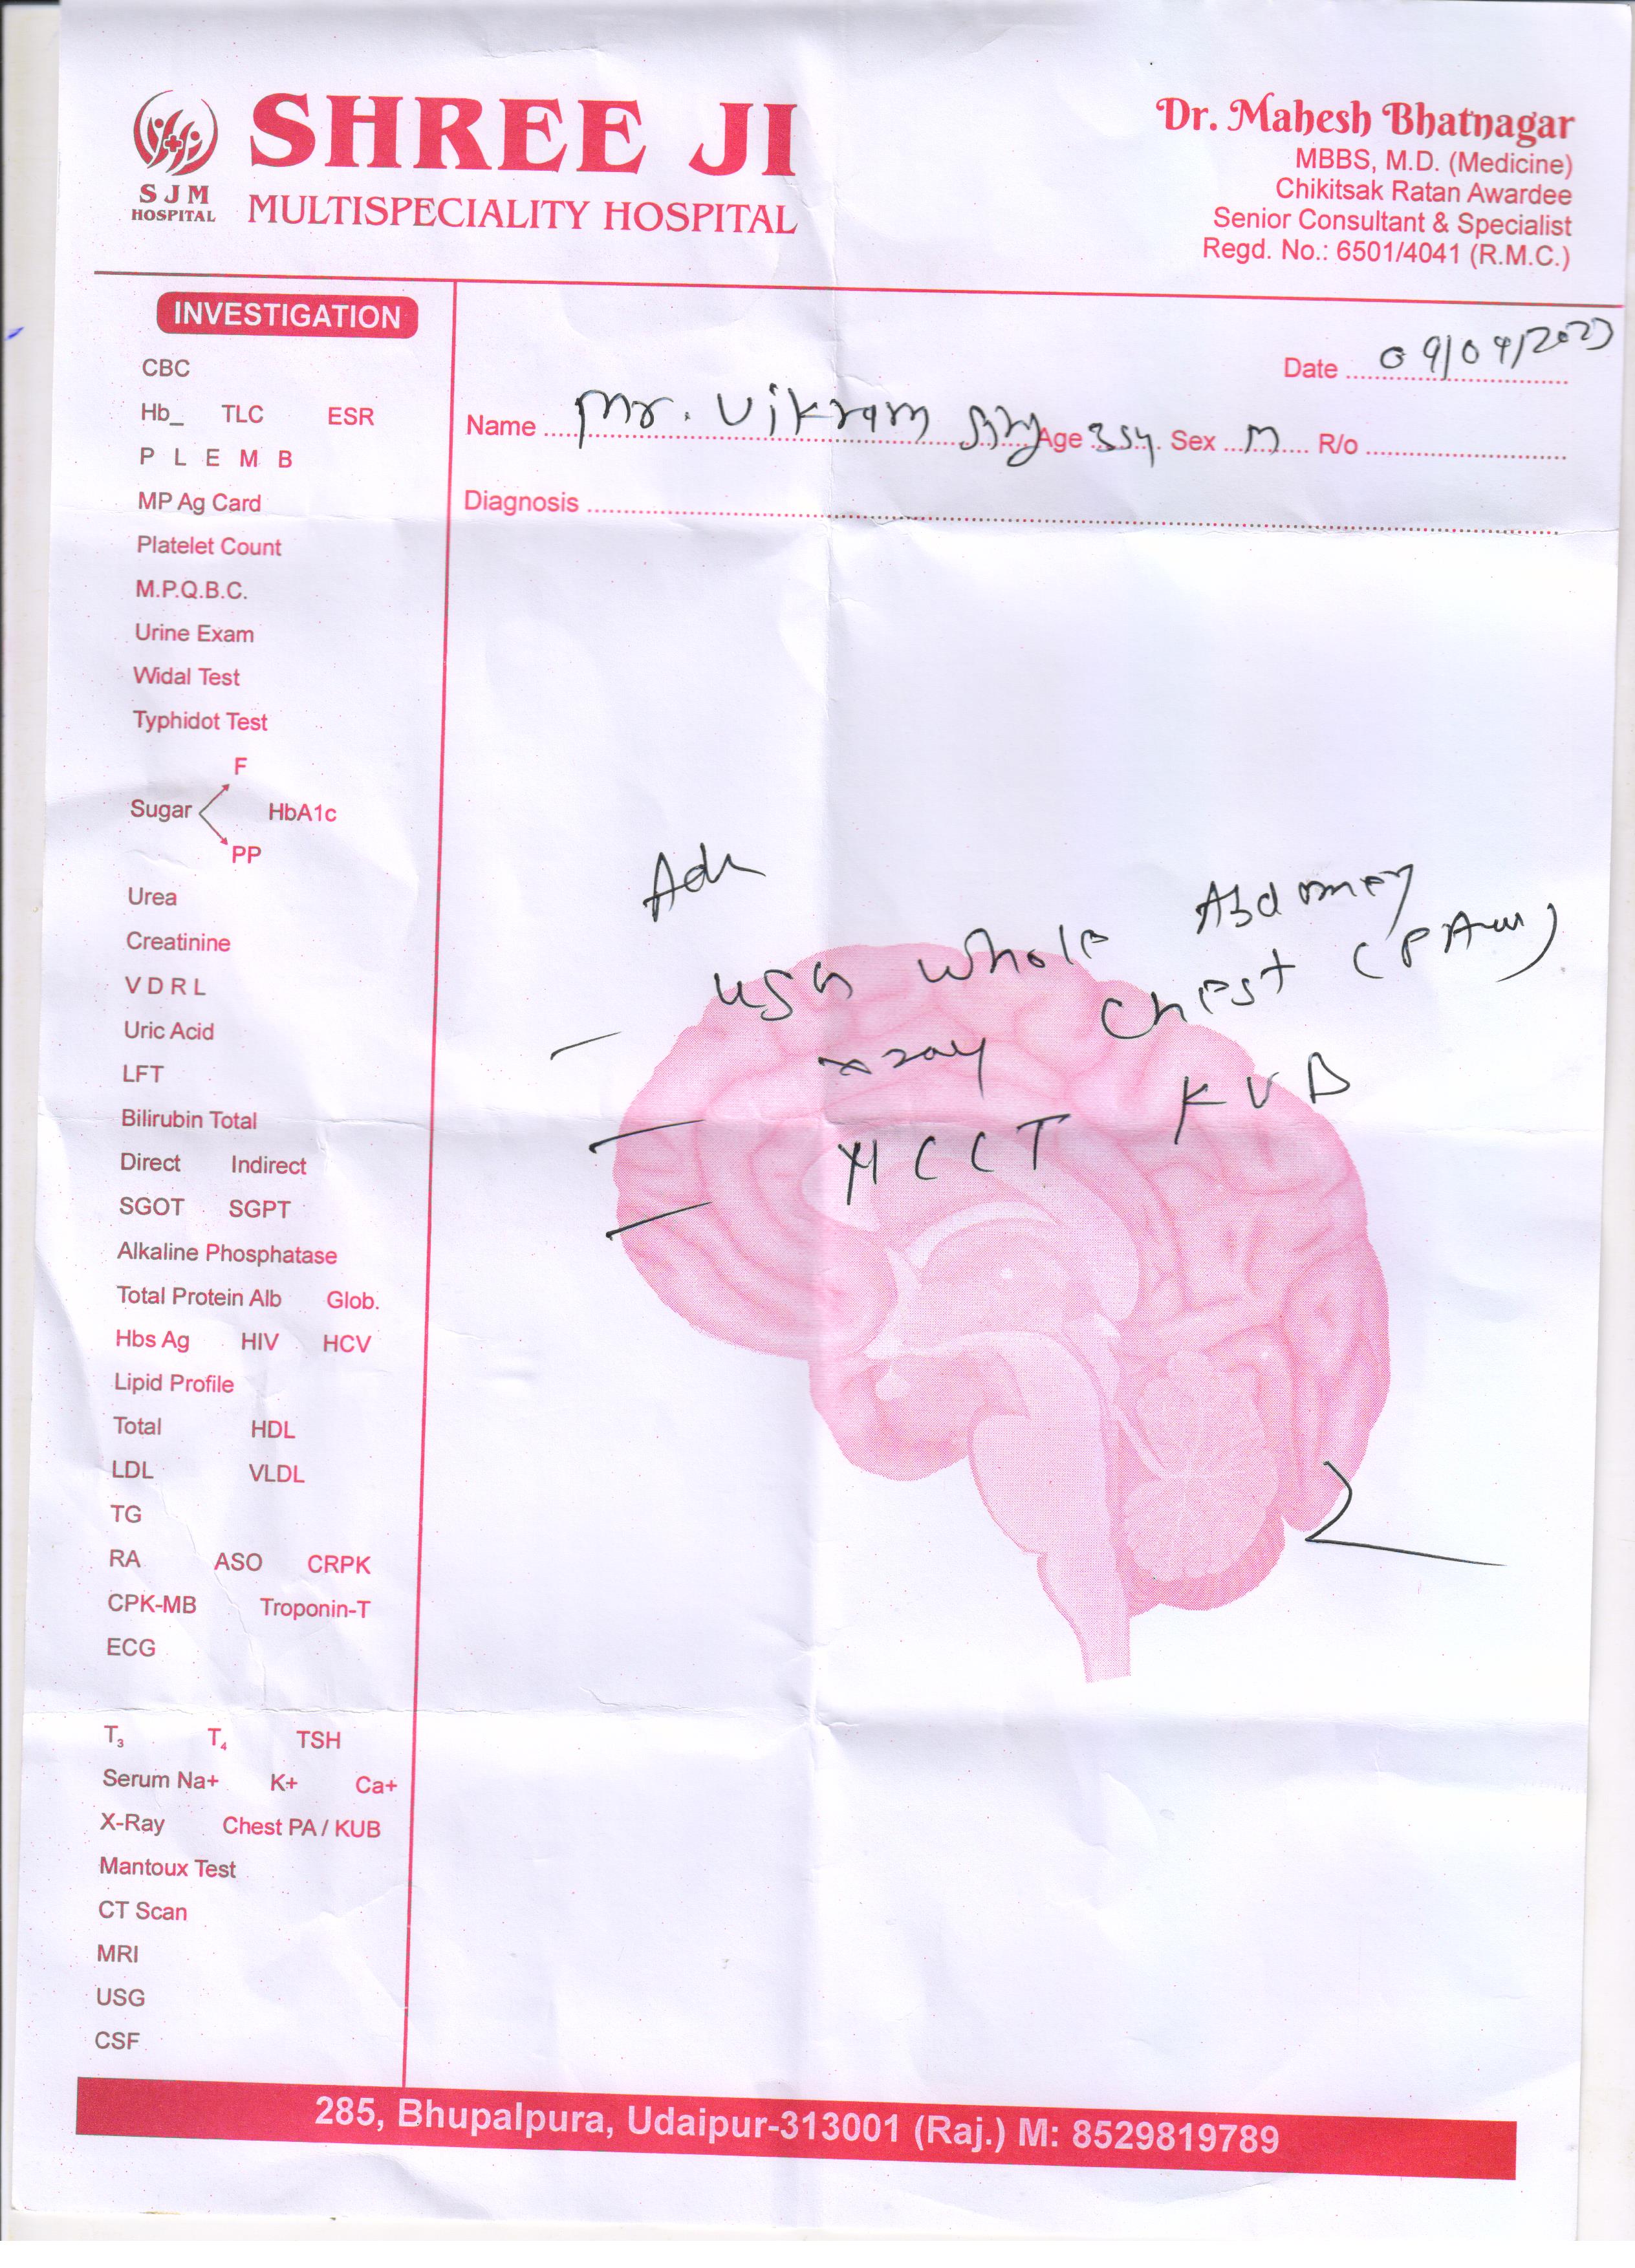 SHREE JI
SJM
HOSPITAL
MULTISPECIALITY HOSPITAL
Dr. Mahesh Bhatnagar
MBBS, M.D. (Medicine)
Chikitsak Ratan Awardee
Senior Consultant & Specialist
Regd. No.: 6501/4041 (R.M.C.)
INVESTIGATION
CBC
Hb_ TLC ESR
P L E M B
MP Ag Card
Platelet Count
M.P.Q.B.C.
Urine Exam
Widal Test
Typhidot Test
F
Sugar HbA1c
PP
Urea
Creatinine
V D R L
Uric Acid
LFT
Bilirubin Total
Direct Indirect
SGOT SGPT
Alkaline Phosphatase
Total Protein Alb Glob.
Hbs Ag HIV HCV
Lipid Profile
Total HDL
LDL VLDL
TG
RA ASO CRPK
CPK-MB Troponin-T
ECG
T₃ T₄ TSH
Serum Na+ K+ Ca+
X-Ray Chest PA / KUB
Mantoux Test
CT Scan
MRI
USG
CSF
Date 09/04/2023
Name Mr. Vikram Age 35y. Sex M R/o
Diagnosis
Adv
USG whole Abdomen
xray chest (PA
NCCT KUB
285, Bhupalpura, Udaipur-313001 (Raj.) M: 8529819789